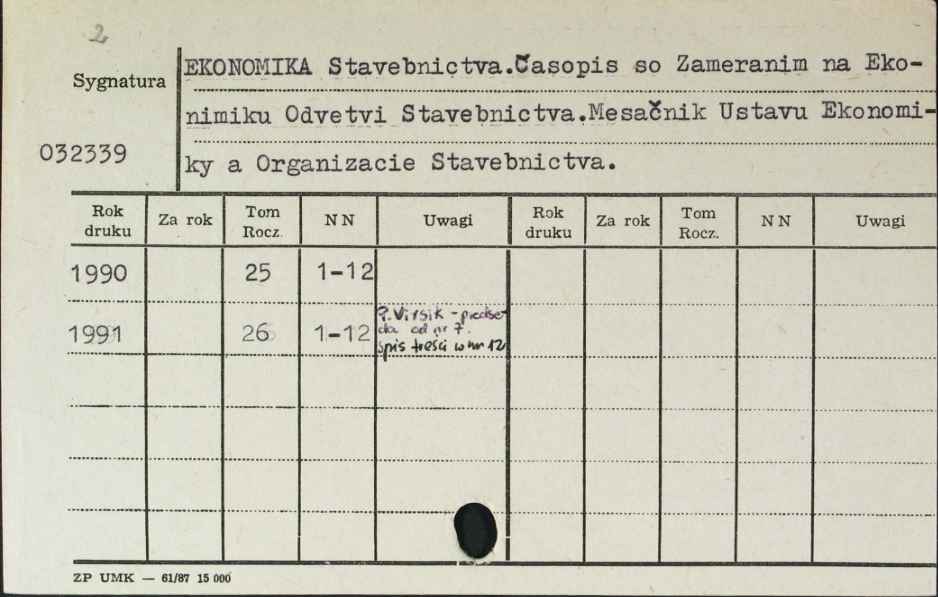 2
Sygnatura
EKONOMIKA Stavebnictva.Časopis so Zameranim na Eko-
nimiku Odvetvi Stavebnictva.Mesačnik Ustavu Ekonomi-
032339
ky a Organizacie Stavebnictva.
Rok druku Za rok Tom Rocz. N N Uwagi Rok druku Za rok Tom Rocz. N N Uwagi
1990 25 1-12
1991 26 1-12
P.Virsik - predse-
da od nr 7.
spis treści w nr 12
ZP UMK — 61/87 15 000